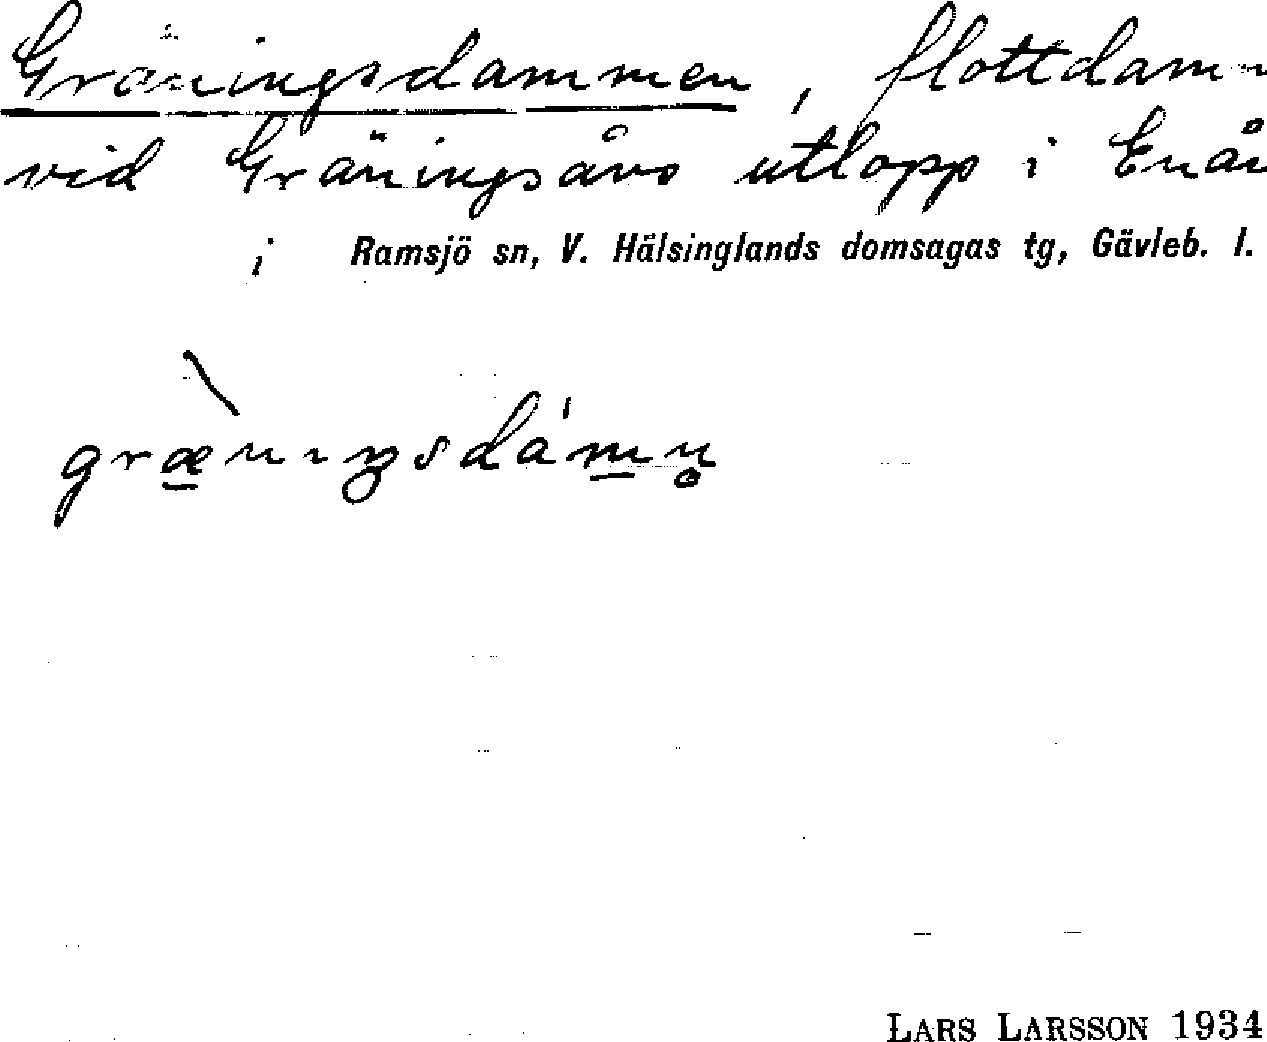 Gräningsdammen, flottdamm
vid Gräningsåns utlopp i Enån
i Ramsjö sn, V. Hälsinglands domsagas tg, Gävleb. l.
græ̀nıŋsdám̲n̥
LARS LARSSON 1934